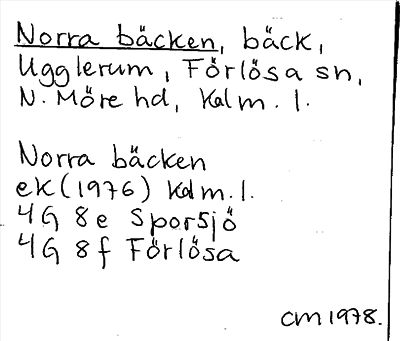 Norra bäcken, bäck,
Ugglerum, Förlösa sn,
N. Möre hd, Kalm. l.
Norra bäcken
ek (1976) Kalm. l.
4G 8e Sporsjö
4G 8f Förlösa
CM 1978.